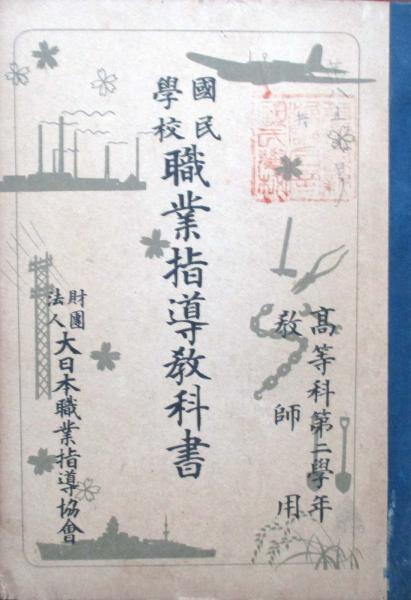 高等科第二學年
教師用
國民
學校
職業指導教科書
財團
法人
大日本職業指導協會